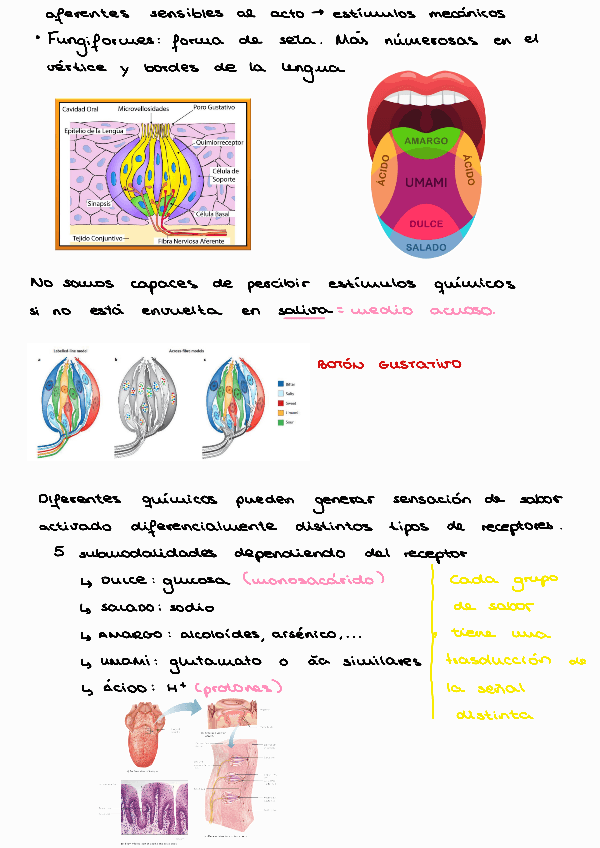 aferentes sensibles al acto → estímulos mecánicos
• Fungiformes: forma de seta. Más númerosas en el
vértice y bordes de la lengua
Cavidad Oral
Microvellosidades
Poro Gustativo
Epitelio de la Lengua
Quimiorreceptor
Célula de
Soporte
Sinapsis
Célula Basal
Tejido Conjuntivo
Fibra Nerviosa Aferente
AMARGO
ÁCIDO
ÁCIDO
UMAMI
DULCE
SALADO
No somos capaces de percibir estímulos químicos
si no está envuelta en saliva = medio acuoso.
Labelled-line model
Across-fibre models
a
b
c
Bitter
Salty
Sweet
Umami
Sour
BOTÓN GUSTATIVO
Diferentes químicos pueden generar sensación de sabor
activado diferencialmente distintos tipos de receptores.
5 submodalidades dependiendo del receptor
↳ DULCE: glucosa (monosacárido)
↳ SALADO: sodio
↳ AMARGO: alcoloídes, arsénico,...
↳ UMAMI: glutamato o āa similares
↳ ÁCIDO: H+ (protones)
cada grupo
de sabor
tiene una
trasducción de
la señal
distinta